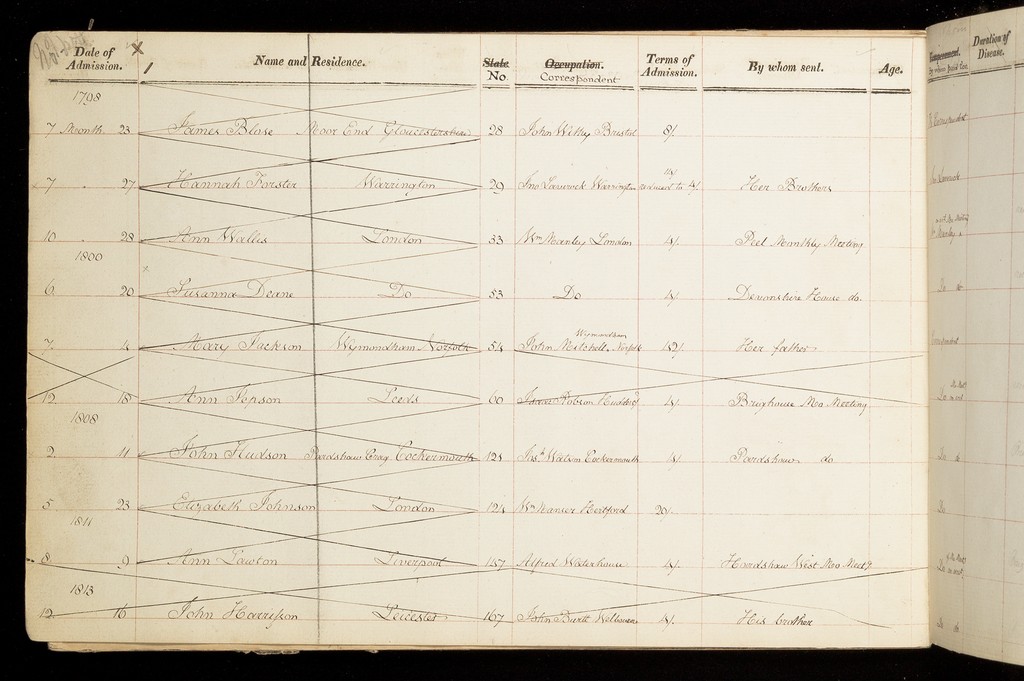 Date of Admission. Name and Residence. State No. Occupation. Correspondent Terms of Admission. By whom sent. Age. Duration of Disease.
1798
7 Month 23 James Blose Moor End Gloucestershire 28 John Bristol 8/
7 . 27 Hannah Forster Warrington 29 Jno Warrington reduced to 4/ Her Brothers
10 . 28 Ann Wallis London 33 Wm Manley London 4/ Peel Monthly Meeting
1800
6 20 Susanna Deane Do 53 Do 4/ Devonshire House do.
Wymondham
7 4 Mary Jackson Wymondham Norfolk 54 John Mitchell. Norfolk Her father
12 18 Ann Jepson Leeds 60 Robson 4/ Brighouse Mo Meeting
1808
2 11 John Hudson Pardshaw Crag Cockermouth 121 Watson Cockermouth 4/ Pardshaw do
5 23 Elizabeth Johnson London 124 Wm Manser Hertford 20/.
1811
8 9 Ann Lawton Liverpool 147 Alfred Waterhouse 4/ Hardshaw West Mo Meetg
1813
12 16 John Harrisson Leicester 167 John Burtt 4/. His brother